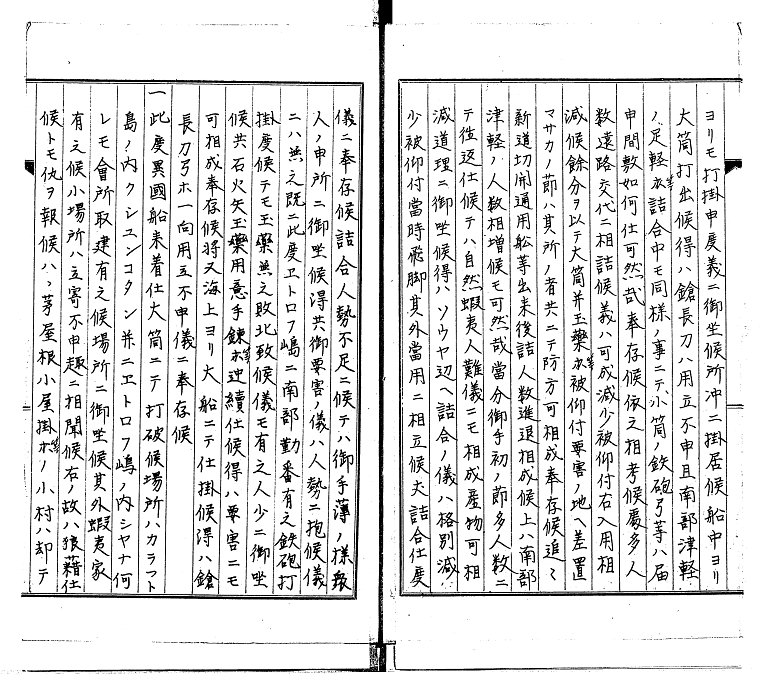 ヨリモ打掛申度義ニ御坐候所沖ニ掛居候船中ヨリ
大筒打出候得ハ鎗長刀ハ用立不申且南部津軽
ノ足軽等詰合中モ同様ノ事ニテ小筒ノ鉄砲弓等ハ届
申間敷如何仕可然哉奉存候依之相考候處多人
数遠路交代ニ相詰候義ハ可成減少被仰付右入用相
減候餘分ヲ以テ大筒并玉藥等被仰付要害ノ地ヘ差置
マサカノ節ハ其所ノ者共ニテ防方可相成奉存候追々
新道切開通用舩等出来後詰人数進退相成候上ハ南部
津軽ノ人数相増候モ可然哉當分御手初ノ節多人数ニ
テ徃返仕候テハ自然蝦夷人難儀ニモ相成産物可相
減道理ニ御坐候得ハソウヤ辺ヘ詰合ノ儀ハ格別減
少被仰付當時飛脚其外當用ニ相立候丈詰合仕度
儀ニ奉存候詰合人勢不足ニ候テハ御手薄ノ様諸
人ノ申所ニ御坐候得共御要害ノ儀ハ人勢ニ抱候儀
ニハ無之既ニ此度ヱトロフ嶋ニ南部勤番有之鉄砲打
掛度候テモ玉藥無之敗北致候儀モ有之人少ニ御坐
候共石火矢玉藥用意手錬等迚續仕候得ハ要害ニモ
可相成奉存候将又海上ヨリ大船ニテ仕掛候得ハ鎗
長刀弓ホ一向用立不申儀ニ奉存候
一此度異國船来着仕大筒ニテ打破候場所ハカラフト
島ノ内クシユンコタン并ニヱトロフ嶋ノ内シヤナ何
レモ會所取建有之候場所ニ御坐候其外蝦夷家
有之候小場所ハ立寄不申趣ニ相聞候右ノ故ハ狼藉仕
候トモ仇ヲ報候ハヽ茅屋根小屋掛等ノ小村ハ却テ